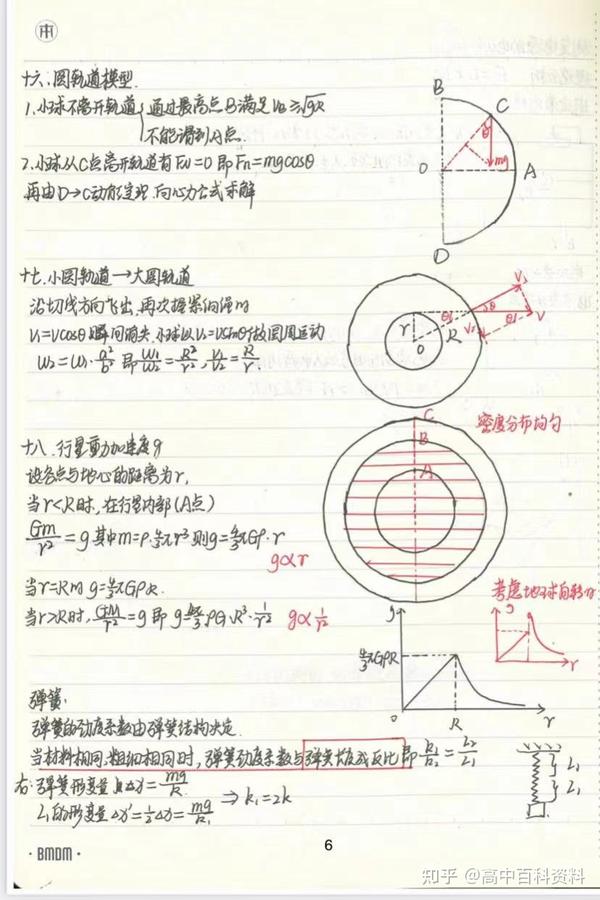 十六.圆轨道模型.
1.小球不离开轨道 通过最高点B满足 VB≥√gR
不能滑到A点.
2.小球从C点离开轨道有FN=0 即 Fn=mgcosθ
再由D→C动能定理.向心力公式求解
B
C
θ
mg
O
A
D
十七.小圆轨道→大圆轨道
沿切线方向飞出,再次绷紧的瞬时
V1=Vcosθ 瞬间消失,小球以V2=Vsinθ做圆周运动
W2=W1·a²/b² 即 W1/W2=R²/r², V1/V2=R/r.
V1
θ
V
V2
r
R
O
十八.行星重力加速度g
设各点与地心的距离为r,
当r<R时,在行星内部(A点)
Gm/r²=g 其中m=ρ·4/3πr³ 则g=4/3πGρ·r
g∝r
当r=R时 g=4/3πGρR.
当r>R时, GM/r²=g 即 g=4π/3ρG·R³·1/r² g∝1/r²
C
B
A
密度分布均匀
考虑地球自转时
g
r
g
4/3πGρR
O
R
r
弹簧:
弹簧的劲度系数由弹簧结构决定.
当材料相同.粗细相同时,弹簧劲度系数与弹簧长度成反比 即 k1/k2=L2/L1
右:弹簧形变量 Δx=mg/k
L1的形变量Δx'=1/2Δx=mg/k1 ⇒ k1=2k
L1
L1
6
·BMDM·
知乎 @高中百科资料